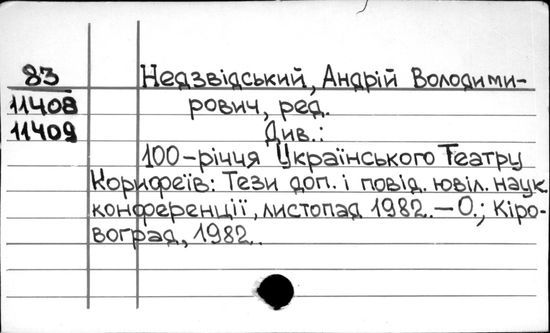 83 Недзвідський, Андрій Володими-
11408 рович, ред.
11409 Див.:
100-річчя Українського Театру
Корифеїв: Тези доп. і повід. ювіл. наук.
конференції, листопад 1982.—О.; Кіро-
воград, 1982.